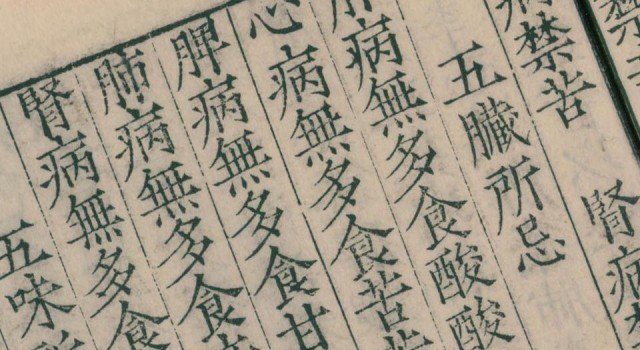 禁
病禁苦　腎病禁
五臟所忌
肝病無多食酸酸
心病無多食苦苦
脾病無多食甘
肺病無多食
腎病無多食
五味所